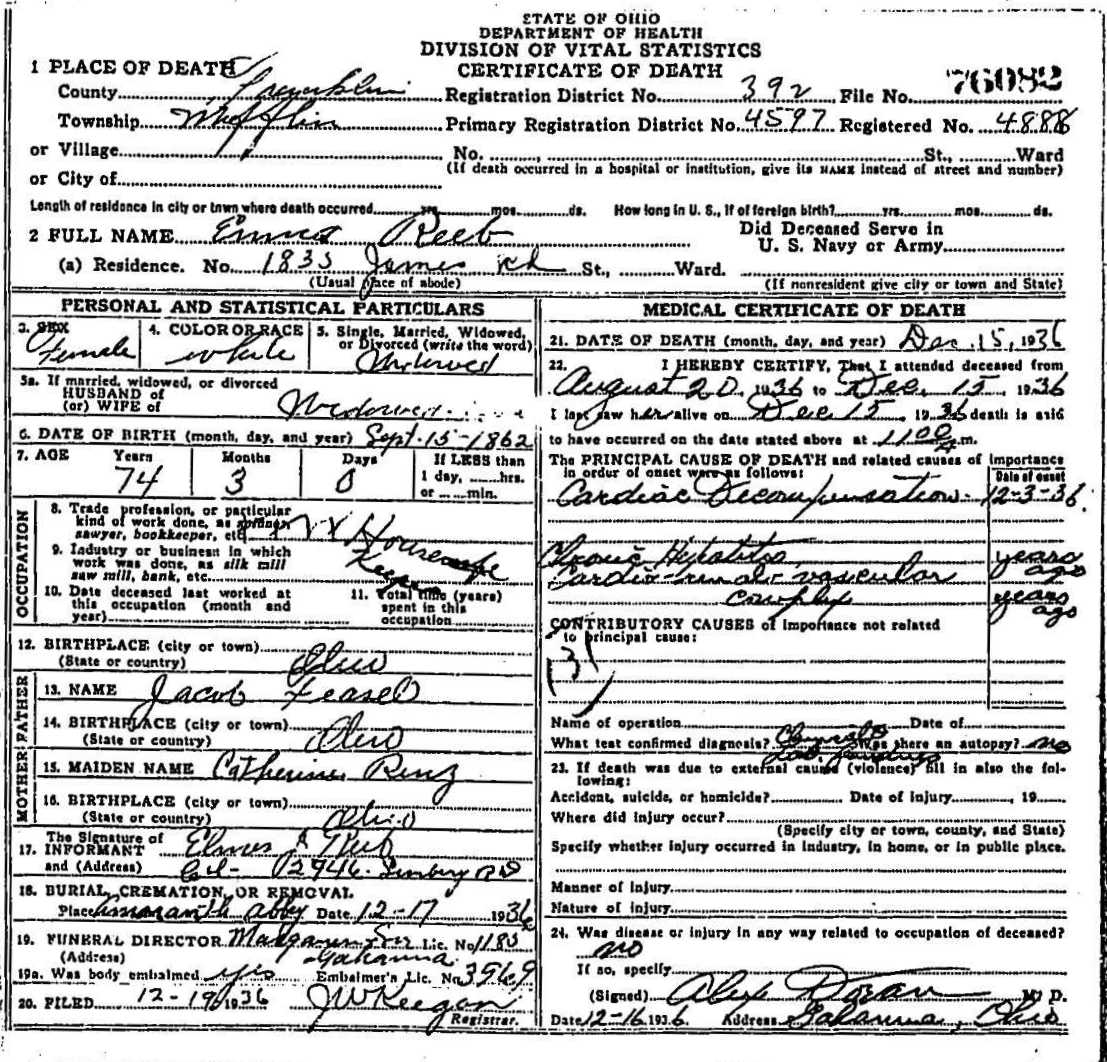 STATE OF OHIO
DEPARTMENT OF HEALTH
DIVISION OF VITAL STATISTICS
CERTIFICATE OF DEATH
76082
1 PLACE OF DEATH
County Franklin Registration District No. 392 File No.
Township Mifflin Primary Registration District No. 4597 Registered No. 4888
or Village No. St., Ward
(If death occurred in a hospital or institution, give its NAME instead of street and number)
or City of
Length of residence in city or town where death occurred yrs. mos. ds. How long in U. S., if of foreign birth? yrs. mos. ds.
2 FULL NAME Emma Reeb Did Deceased Serve in U. S. Navy or Army
(a) Residence. No. 1835 James Rd St., Ward.
(Usual place of abode) (If nonresident give city or town and State)
PERSONAL AND STATISTICAL PARTICULARS
3. SEX Female
4. COLOR OR RACE white
5. Single, Married, Widowed, or Divorced (write the word) Widowed
5a. If married, widowed, or divorced
HUSBAND of
(or) WIFE of Widowed
6. DATE OF BIRTH (month, day, and year) Sept-15-1862
7. AGE Years 74 Months 3 Days 0 If LESS than 1 day, hrs. or min.
OCCUPATION
8. Trade profession, or particular
kind of work done, as spinner
sawyer, bookkeeper, etc.
9. Industry or business in which
work was done, as silk mill
saw mill, bank, etc.
10. Date deceased last worked at
this occupation (month and
year)
11. Total time (years)
spent in this
occupation
12. BIRTHPLACE (city or town)
(State or country) Ohio
FATHER
13. NAME Jacob Feasel
14. BIRTHPLACE (city or town)
(State or country) Ohio
MOTHER
15. MAIDEN NAME Catherine Renz
16. BIRTHPLACE (city or town)
(State or country) Ohio
17. The Signature of
INFORMANT Elmer Reeb
and (Address) Col- O 2946
18. BURIAL, CREMATION, OR REMOVAL
Place Amaranth Abby Date 12-17 1936
19. FUNERAL DIRECTOR Lic. No. 1185
(Address) Gahanna
19a. Was body embalmed yes Embalmer's Lic. No. 3969
20. FILED 12-19 1936 J W Keegan
Registrar.
MEDICAL CERTIFICATE OF DEATH
21. DATE OF DEATH (month, day, and year) Dec. 15, 1936
22. I HEREBY CERTIFY, That I attended deceased from
August 20, 1936 to Dec. 15 1936
I last saw her alive on Dec 15 1936 death is said
to have occurred on the date stated above at 1100 m.
The PRINCIPAL CAUSE OF DEATH and related causes of importance
in order of onset were as follows: Date of onset
Cardiac Decompensation 12-3-36
Chronic years ago
Cardio-renal-vascular years ago
complex
CONTRIBUTORY CAUSES of importance not related
to principal cause:
131
Name of operation Date of
What test confirmed diagnosis? Clinical & Lab. findings Was there an autopsy? no
23. If death was due to external cause (violence) fill in also the fol-
lowing:
Accident, suicide, or homicide? Date of injury , 19
Where did injury occur?
(Specify city or town, county, and State)
Specify whether injury occurred in industry, in home, or in public place.
Manner of injury
Nature of injury
24. Was disease or injury in any way related to occupation of deceased?
no
If so, specify
(Signed) Alex Doran M. D.
Date 12-16 1936 Address Gahanna, Ohio